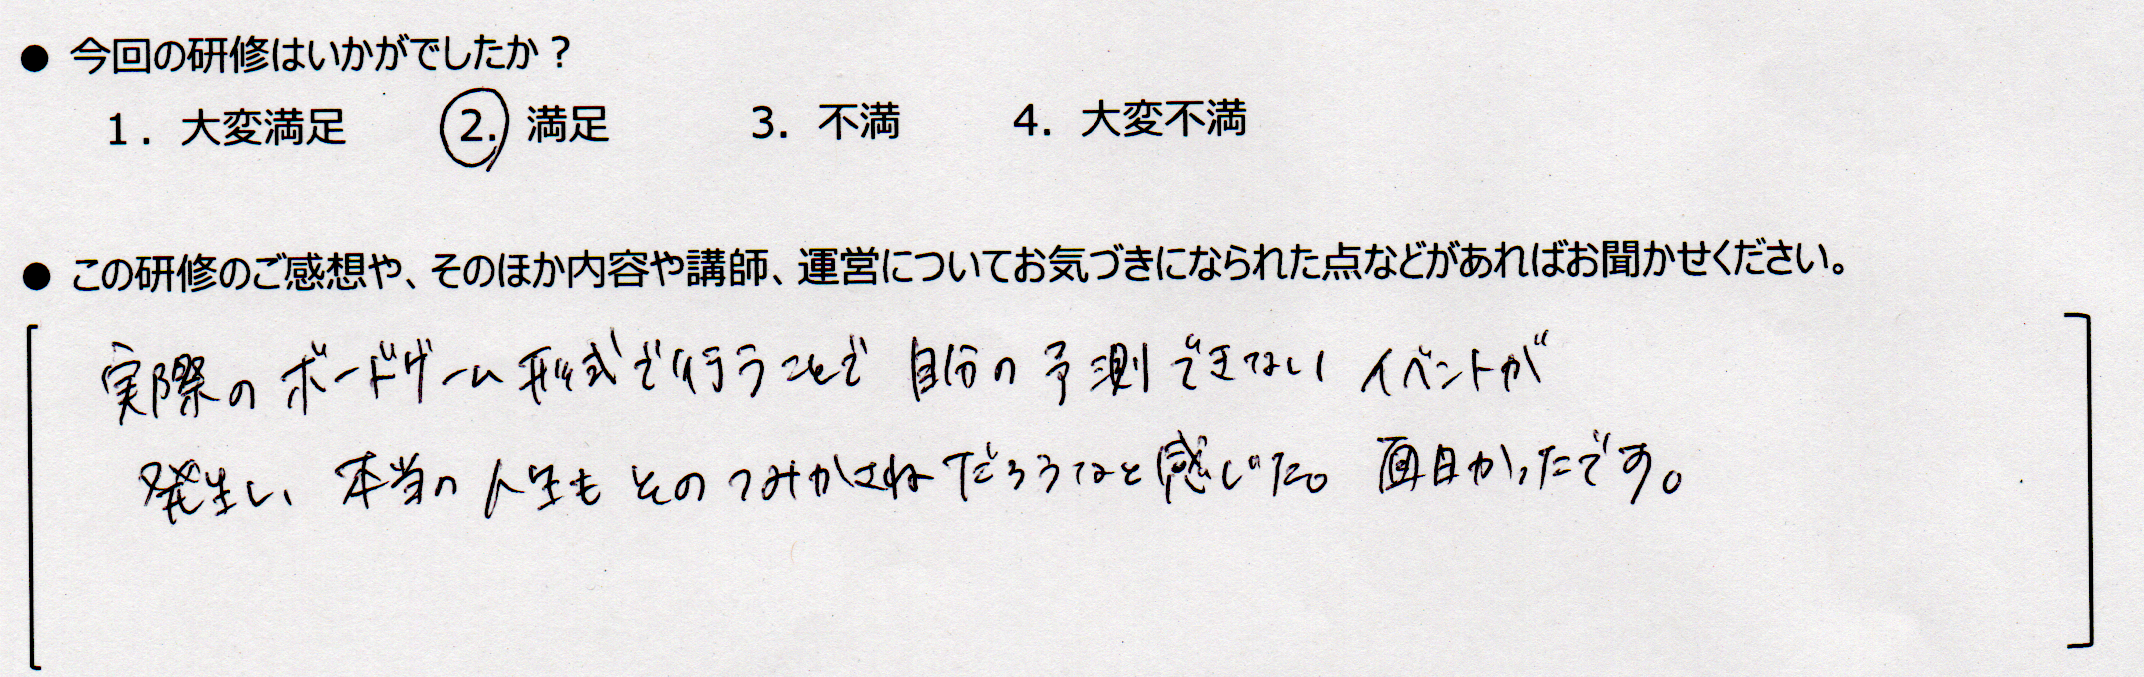 ● 今回の研修はいかがでしたか？
1. 大変満足 2. 満足 3. 不満 4. 大変不満
● この研修のご感想や、そのほか内容や講師、運営についてお気づきになられた点などがあればお聞かせください。
実際のボードゲーム形式で行うことで 自分の予測できない イベントが
発生し、本当の人生も そのつみかさねだろうなと感じた。面白かったです。